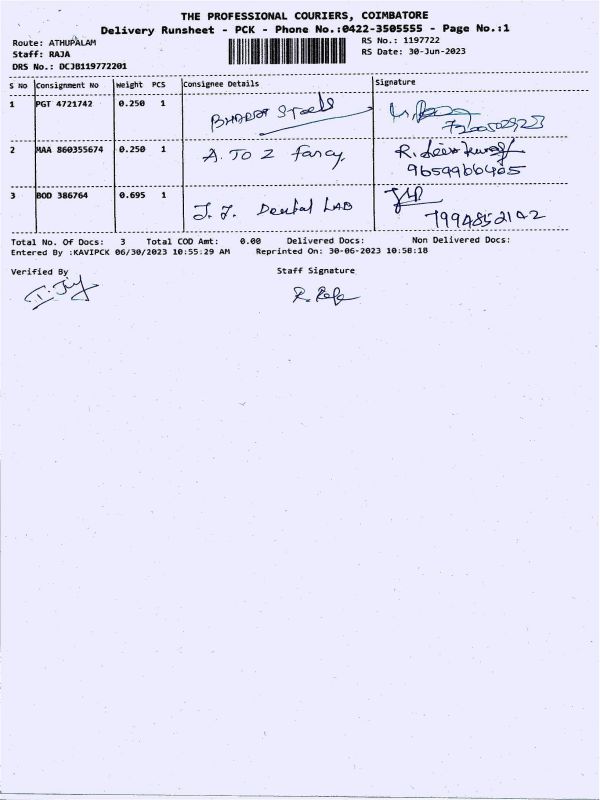 THE PROFESSIONAL COURIERS, COIMBATORE
Delivery Runsheet - PCK - Phone No.:0422-3505555 - Page No.:1
Route: ATHUPALAM RS No.: 1197722
Staff: RAJA RS Date: 30-Jun-2023
DRS No.: DCJB119772201
S No Consignment No Weight PCS Consignee Details Signature
1 PGT 4721742 0.250 1 BHARAT Steels
2 MAA 860355674 0.250 1 A. TO Z fancy,
9659966405
3 BOD 386764 0.695 1 J. J. Dental LAB
7994852102
Total No. Of Docs: 3 Total COD Amt: 0.00 Delivered Docs: Non Delivered Docs:
Entered By :KAVIPCK 06/30/2023 10:55:29 AM Reprinted On: 30-06-2023 10:58:18
Verified By Staff Signature